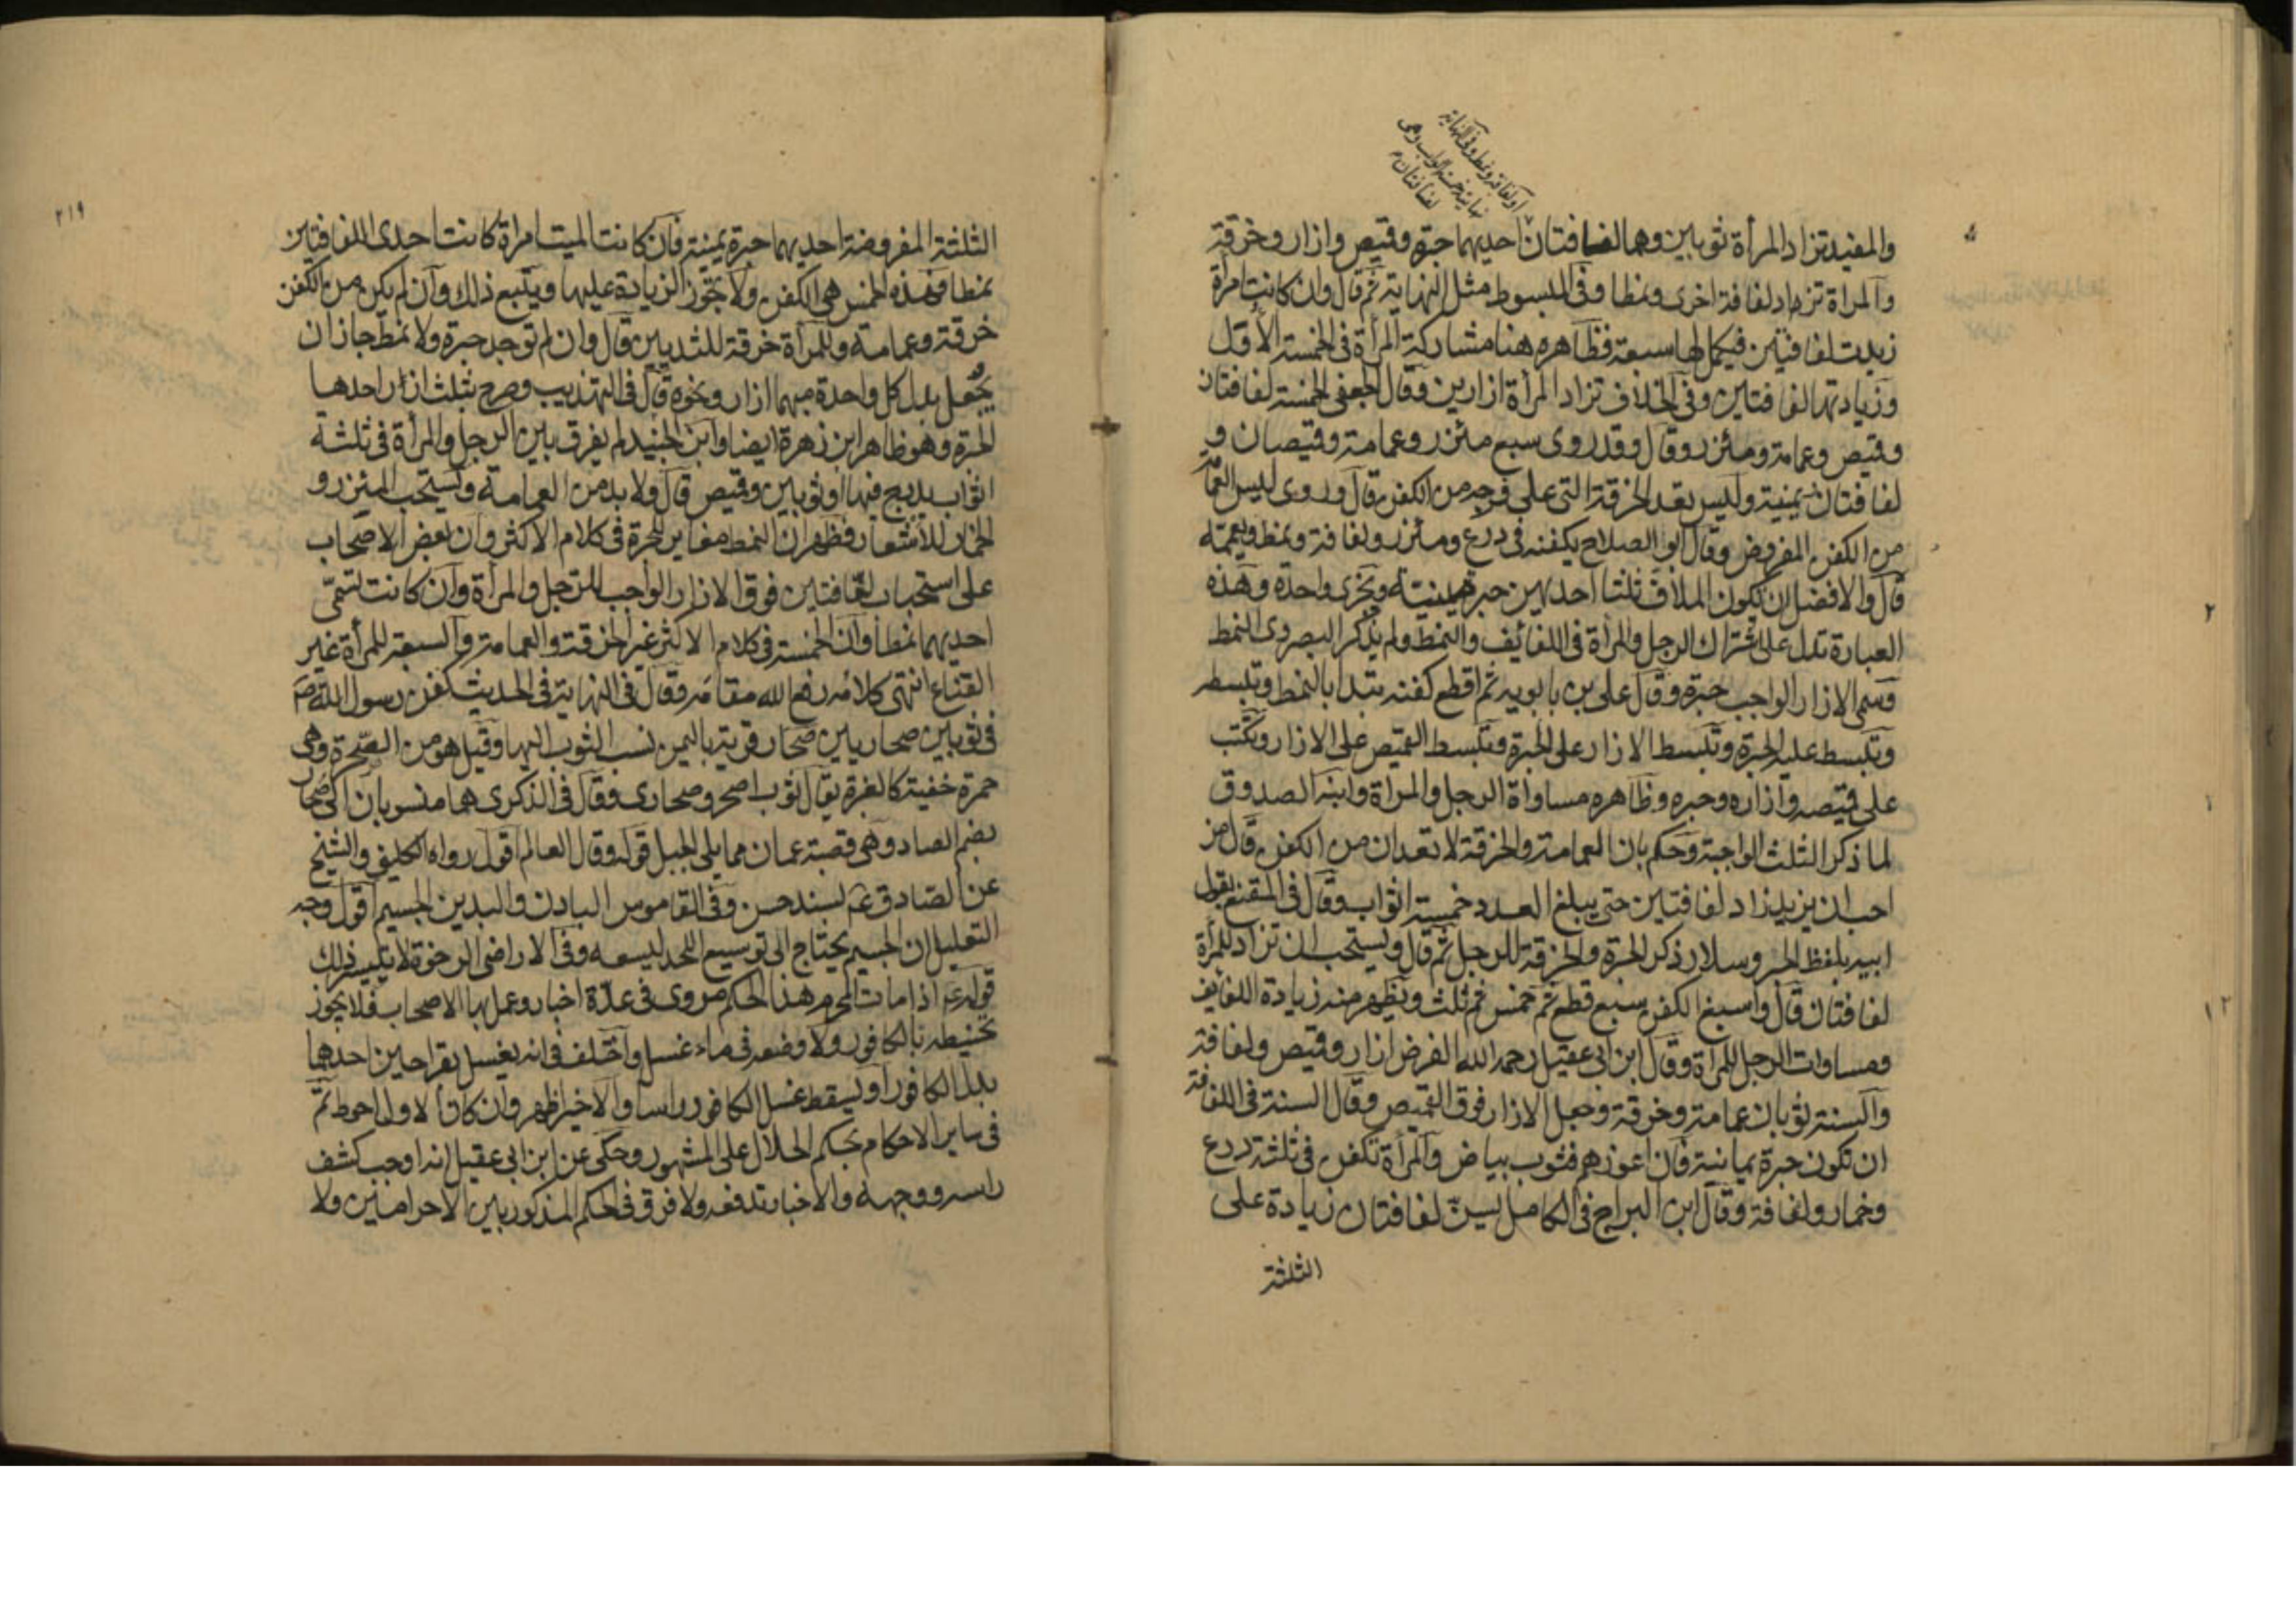 او لفافة ونمط وفى النهاية
نهايته خمسة اثواب وهى
لفافتان م
والمفيد تزاد المرأة ثوبين وهما لفافتان احديهما حبرة وقميص وازار وخرقة
والمرأة تزاد لفافة اخرى ونمطا وفى المبسوط مثل النهاية ثم قال وان كانت امرأة
زيدت لفافتين فيكمل لها سبعة فظاهره هنا مشاركة المرأة فى الخمسة الأوَل
وزيادتها لفافتين وفى الخلاف تزاد المرأة ازارين وقال الجعفى الخمسة لفافتان
وقميص وعمامة ومئزر وقال وقد روى سبع مئزر وعمامة وقميصان و
لفافتان يمنية وليس تعد الخرقة التى على فرجه من الكفن قال وروى ليس العمامة
من الكفن المفروض وقال ابو الصلاح يكفنه فى درع ومئزر ولفافة ونمط ويعممه
قال والافضل ان تكون الملاف ثلثا احديهن حبرة يمنية وتجزى واحدة وهذه
العبارة تدل على اشتراك الرجل والمرأة فى اللفائف والنمط ولم يذكر البصروى النمط
وسمى الازار الواجب حبرة وقال على بن بابويه ثم اقطع كفنه تبدأ بالنمط وتبسطه
وتبسط عليه الحبرة وتبسط الازار على الحبرة وتبسط القميص على الازار وتكتب
على قميصه وازاره وحبره وظاهره مساواة الرجل والمرأة وابنه الصدوق
لما ذكر الثلث الواجبة وحكم بان العمامة والخرقة لا تعدان من الكفن قال من
احب ان يزيد زاد لفافتين حتى يبلغ العدد خمسة اثواب وقال فى المقنع بقول
ابيه بلفظ الخبر وسلار ذكر الحبرة والخرقة للرجل ثم قال ويستحب ان تزاد للمرأة
لفافتان قال واسبغ الكفن سبع قطع ثم خمس ثم ثلث ويظهر منه زيادة اللفايف
ومساوات الرجل للمرأة وقال ابن ابى عقيل رحمه الله الفرض ازار وقميص ولفافة
والسنة ثوبان عمامة وخرقة وجعل الازار فوق القميص وقال السنة فى اللفافة
ان تكون حبرة يمانية فان اعوزهم فثوب بياض والمرأة تكفن فى ثلثة درع
وخمار ولفافة وقال ابن البراج فى الكامل يسن لفافتان زيادة على
الثلثة
٢١٩
الثلثة المفروضة احديهما حبرة يمنية فان كانت الميت امراة كانت احدى اللفافتين
نمطا فهذه الخمس هى الكفن ولا تجوز الزيادة عليها ويتبع ذلك وان لم يكن من الكفن
خرقة وعمامة وللمرأة خرقة للثديين قال وان لم توجد حبرة ولا نمط جاز ان
يجعل بدل كل واحدة منهما ازار ونحوه قال فى المهذب وصرح بثلث ازار احدها
الحبرة وهو ظاهر ابن زهرة ايضا وابن الجنيد لم يفرق بين الرجل والمرأة فى ثلثة
اثواب يدرج فيها او ثوبين وقميص قال ولا بد من العمامة ويستحب المئزر و
الخمار للاشعار فظهر ان النمط مغاير للحبرة فى كلام الاكثر وان بعض الاصحاب
على استحباب لفافتين فوق الازار الواجب للرجل والمرأة وان كانت تسمى
احديهما نمطا وان الخمسة فى كلام الاكثر غير الخرقة والعمامة والسبعة للمرأة غير
القناع انتهى كلامه رفع الله مقامه وقال فى النهاية فى الحديث كفن رسول الله ص
فى ثوبين صحاريين صحار قرية باليمن نسب الثوب اليها وقيل هو من الصحرة وهى
حمرة خفية كالغبرة يقال ثوب اصحر وصحارى وقال فى الذكرى هما منسوبان الى صحار
بضم الصاد وهى قصبة عمان مما يلى الجبل قوله وقال العالم اقول رواه الكلينى والشيخ
عن الصادق ع بسند حسن وفى القاموس البادن والبدين الجسيم اقول وجه
التعليل ان الجسيم يحتاج الى توسيع اللحد ليسعه وفى الاراضى الرخوة لا يتيسر ذلك
قوله ع اذا مات المحرم هذا الحكم مروى فى عدة اخبار وعمل بها الاصحاب فلا يجوز
تحنيطه بالكافور ولا وضعه فى ماء غسله واختلف فى انه يغسل بقراحين احدهما
بدل الكافور او يسقط غسل الكافور راسا والاخير اظهر وان كان الاول احوط ثم
فى ساير الاحكام بحكم الحلال على المشهور وحكى عن ابن ابى عقيل انه اوجب كشف
راسه ووجهه والاخبار تدفعه ولا فرق فى الحكم المذكور بين الاحرامين ولا